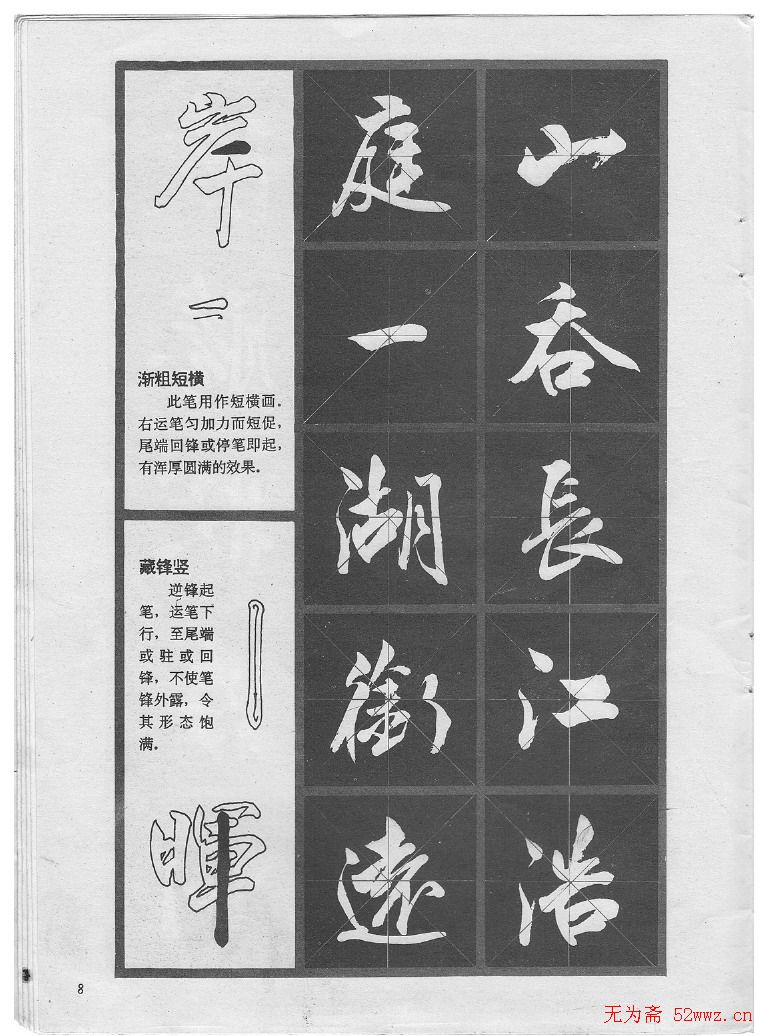 岸
渐粗短横
此笔用作短横画.
右运笔匀加力而短促,
尾端回锋或停笔即起,
有浑厚圆满的效果.
藏锋竖
逆锋起
笔,运笔下
行,至尾端
或驻或回
锋,不使笔
锋外露,令
其形态饱
满.
暉
庭一湖銜遠
山吞長江浩
8
无为斋 52wwz.cn